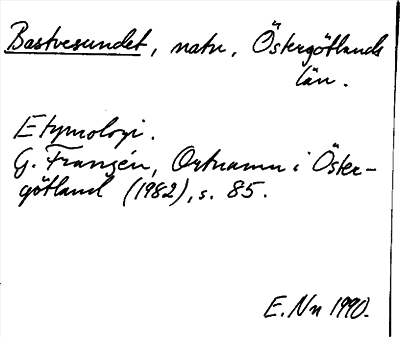 Bastvesundet, natn, Östergötlands
län.
Etymologi.
G. Franzén, Ortnamn i Öster-
götland (1982), s. 85.
E. Nn 1990.